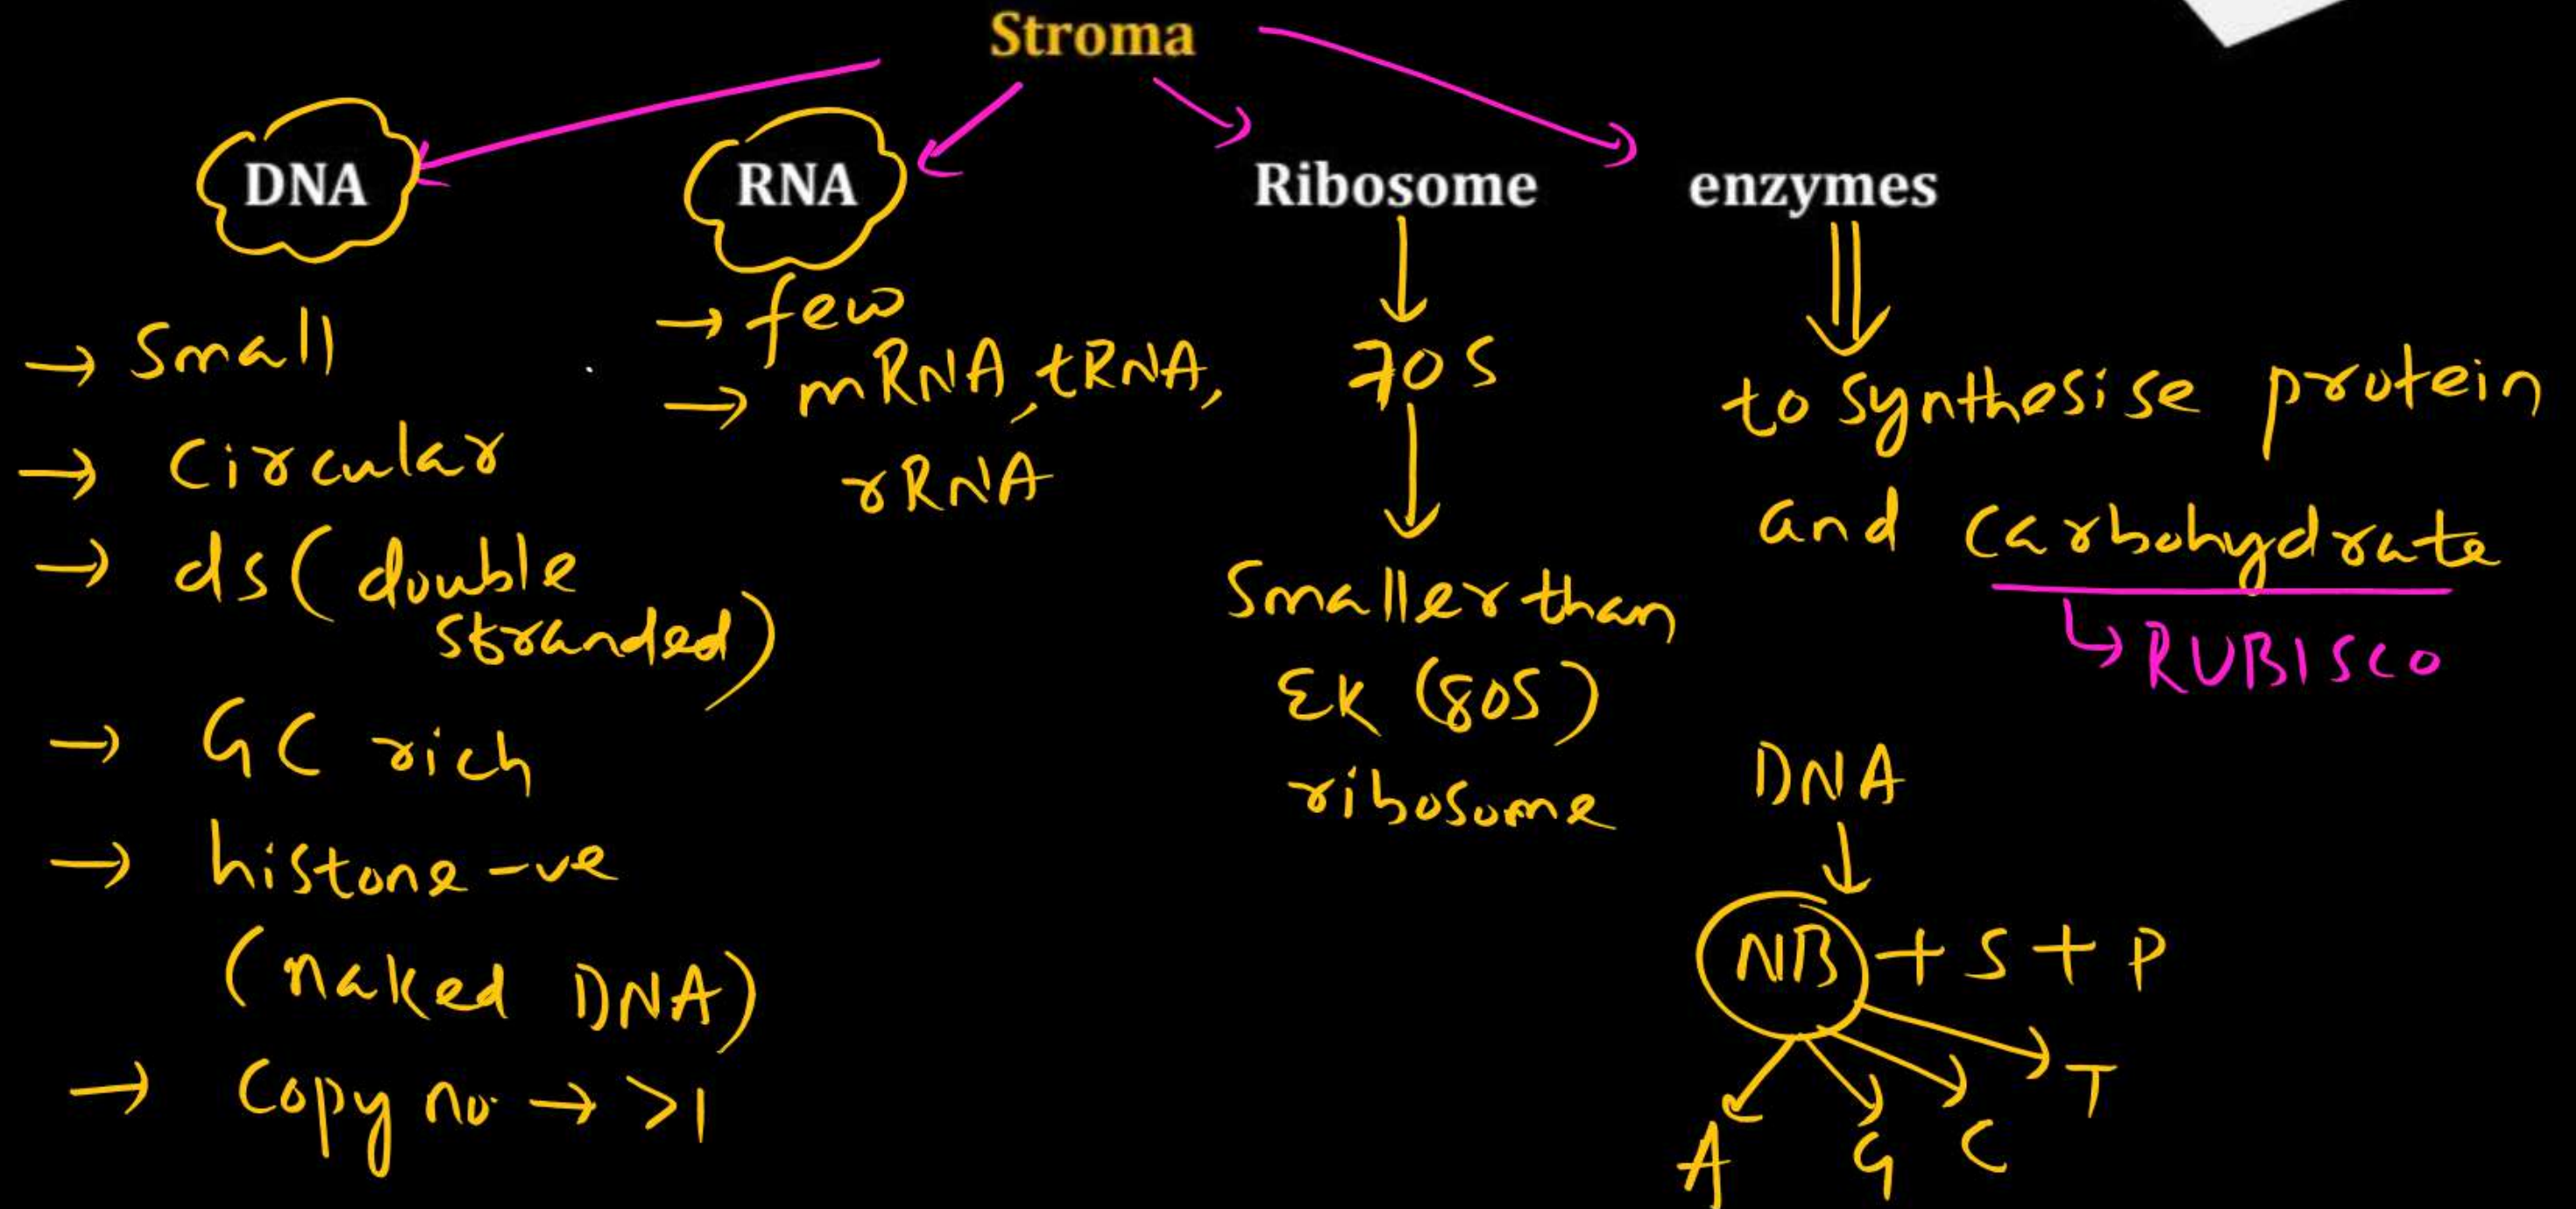 Stroma
DNA
→ Small
→ Circular
→ ds (double
stranded)
→ GC rich
→ histone -ve
(naked DNA)
→ Copy no. → >1
RNA
→ few
→ mRNA, tRNA,
rRNA
Ribosome
70S
Smaller than
EK (80S)
ribosome
enzymes
to synthesise protein
and carbohydrate
↳ RUBISCO
DNA
NB + S + P
A G C T